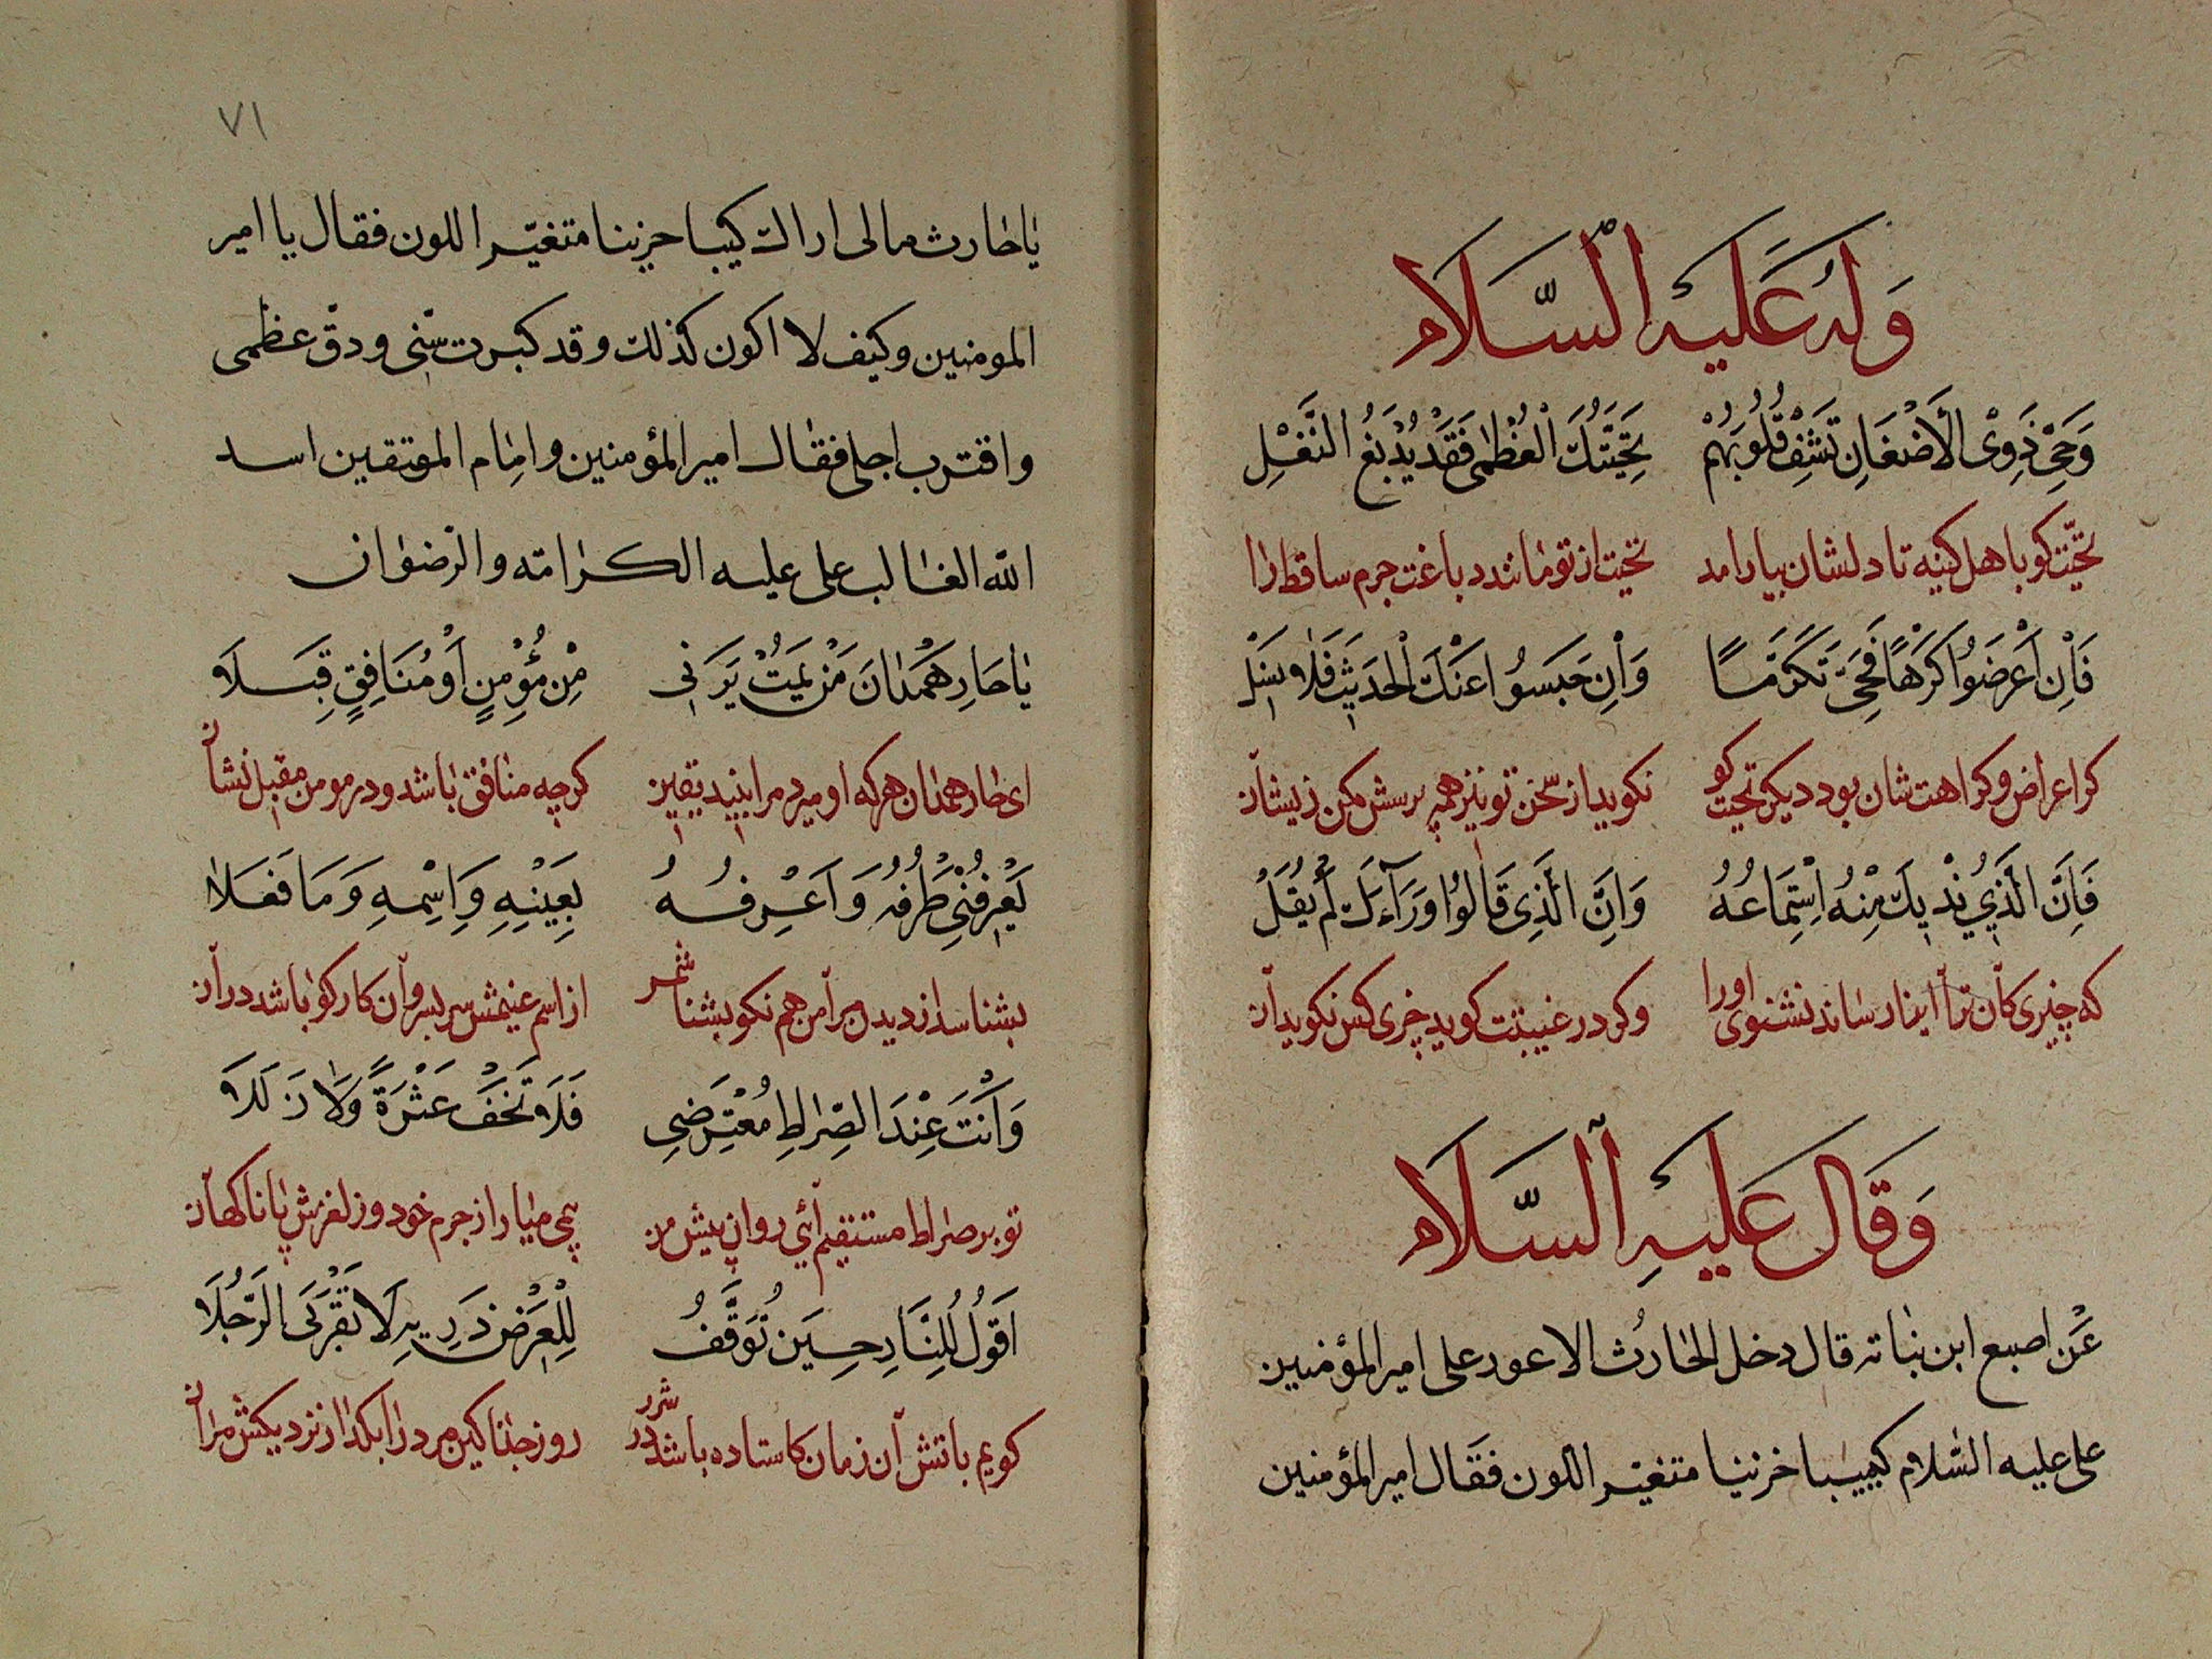 وَلَهُ عَلَيْهِ السَّلَام
وَحَيِّ ذَوِى الْأَضْغَانِ تَشْفِ قُلُوبَهُمْ تَحِيَّتُكَ الْعُظْمٰى فَقَدْ يُدْبَغُ النَّغَلِ
تحیّت کو باهل کینه تا دلشان بیارامد تحیت از تو مانند دباغت جرم ساقط را
فَاِنْ أَعْرَضُوا كَرْهًا فَحَيِّ تَكَرُّمًا وَاِنْ حَبَسُوا عَنْكَ الْحَدِيثَ فَلَا تَسَلْ
کر اعراض و کراهت شان بود دیکر تحیت کو نکویند از سخن تو نیز هم پرسش مکن زیشان
فَاِنَّ الَّذِي يُؤْذِيكَ مِنْهُ اسْتِمَاعُهُ وَاِنَّ الَّذِى قَالُوا وَرَآءَكَ لَمْ يُقَلْ
که چیزی کان ترا ایذا رساند نشنوی اورا وکر در غیبتت کوید چیزی کس نکوید آن
وَقَالَ عَلَيْهِ السَّلَام
عَن اصبع ابن نباته قال دخل الحارث الاعور على امير المؤمنين
على عليه السلام كئيبا حزينا متغيّر اللون فقال امير المؤمنين
٧١
يا حارث مالى اراك كئيبا حزينا متغيّر اللون فقال يا امير
المومنين وكيف لا اكون كذلك وقد كبرت سنّى ودقّ عظمى
واقترب اجلى فقال امير المؤمنين وامام المتقين اسد
الله الغالب على عليه الكرامة والرضوان
يَا حَارِ هَمْدَانَ مَنْ يَمُتْ يَرَنِى مِنْ مُؤْمِنٍ اَوْ مُنَافِقٍ قِبَلَا
ای حار همدان هر که او میرد مرا بیند یقین کرچه منافق باشد ودر مومن مقبل نشان
يَعْرِفُنِى طَرْفُهُ وَاَعْرِفُهُ بِعَيْنِهِ وَاِسْمِهِ وَمَا فَعَلَا
بشناسد از دیدن مرا من هم نکو بشناسمش از اسم عینش سر بسر وان کار کو باشد در آن
وَاَنْتَ عِنْدَ الصِّرَاطِ مُعْتَرِضِى فَلَا تَخَفْ عَثْرَةً وَلَا زَلَلَا
تو بر صراط مستقیم آئی روان پیش من بیمی میار از جرم خود وز لغزش پا ناکهان
اَقُولُ لِلنَّارِ حِيْنَ تُوقَفُ لِلْعَرْضِ ذَرِيهِ لَا تَقْرَبِى الرَّجُلَا
کویم باتش آن زمان کاستاده باشد در شرر روز جزا کین مرد را بکذار نزدیکش مران